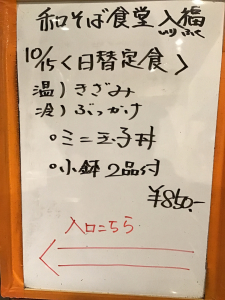 和そば食堂 入福
いり ふく
10/15<日替定食>
温)きざみ
冷)ぶっかけ
○ミニ玉子丼
○小鉢2品付
¥850.-
入口こちら